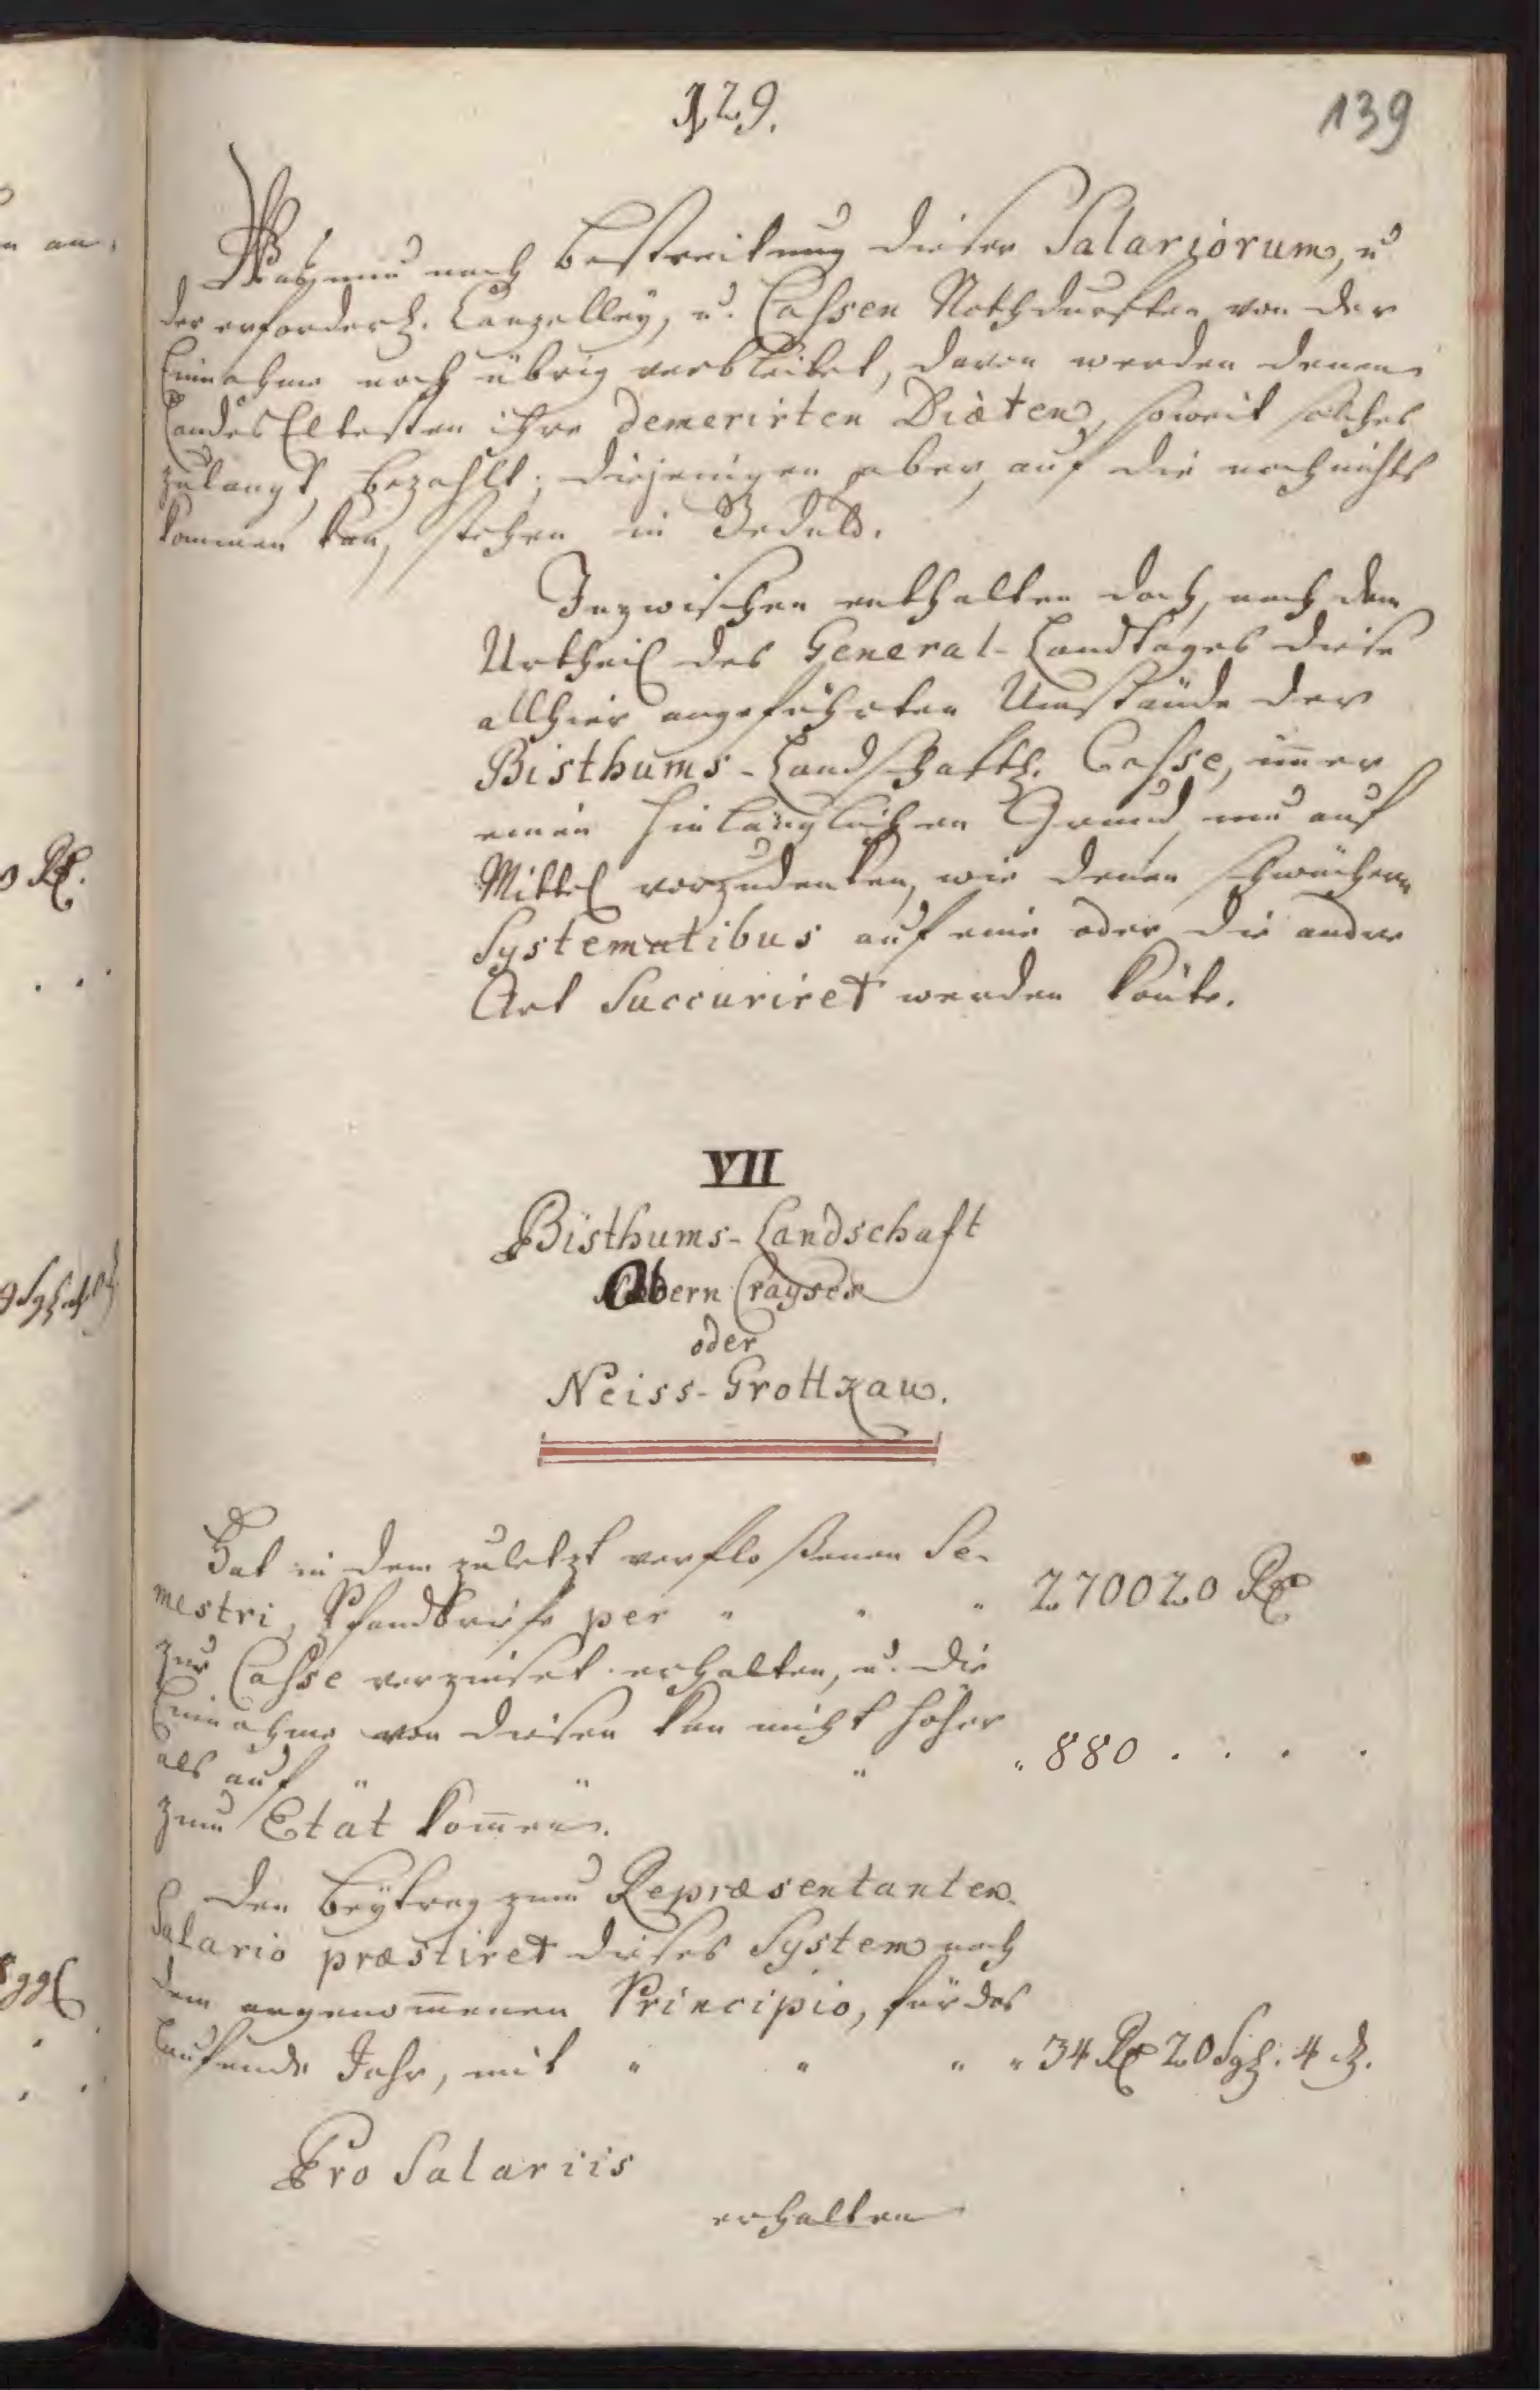 129.
139
Was nun nach Bestreitung dieser Salariorum, u
der erforderl. Canzelley, u. Cassen Nothdurften von der
Einnahme noch übrig verbleibet, davon werden denen
Landes Eltesten ihre demerirten Diäten, soweit solches
zulangt, bezahlt; diejenigen aber, auf die noch nichts
kommen kan, stehen in Gedult.
Inzwischen enthalten doch, nach dem
Urtheil des General-Landtages diese
allhier angeführten Umstände der
Bisthums-Landschafftl. Casse, im̄er
einen hinlänglichen Grund, nun auf
Mittel vorzudenken, wie denen schwächern
Systematibus auf eine oder die andre
Art Succuriret werden könte.
VII
Bisthums-Landschaft
Obern Crayses
oder
Neiss-Grottkau.
Hat in dem zuletzt verfloßenen Se-
mestri, Pfandbriefe per " " " 270020 Rt
zur Casse verzinset erhalten, u. die
Einnahme von diesen kan nicht höher
als auf " " " " 880 . . . .
zum Etat kom̄en.
Den Beytrag zum Repræsentanten-
Salario præstiret dieses System nach
dem angenom̄enen Principio, für das
laufende Jahr, mit " " " " 34 Rt 20 Sgl. 4 d.
Pro Salariis
erhalten